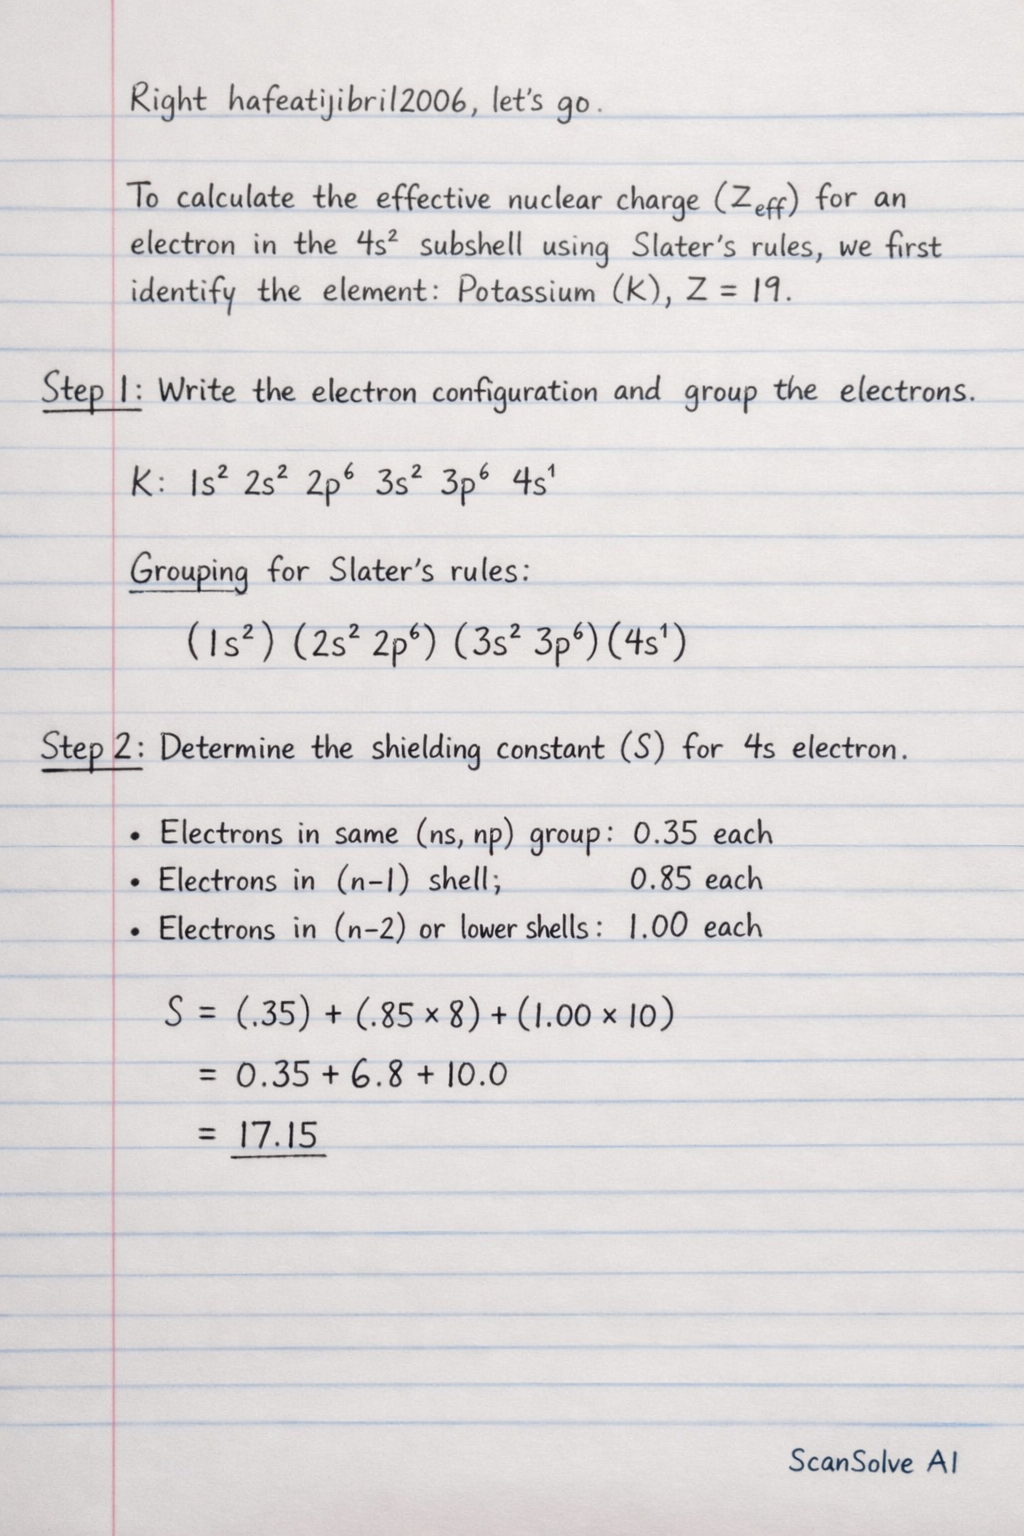 Right hafeatijibril2006, let's go.
To calculate the effective nuclear charge (Z_eff) for an
electron in the 4s² subshell using Slater's rules, we first
identify the element: Potassium (K), Z = 19.
Step 1: Write the electron configuration and group the electrons.
K: 1s² 2s² 2p⁶ 3s² 3p⁶ 4s¹
Grouping for Slater's rules:
(1s²) (2s² 2p⁶) (3s² 3p⁶) (4s¹)
Step 2: Determine the shielding constant (S) for 4s electron.
• Electrons in same (ns, np) group: 0.35 each
• Electrons in (n-1) shell; 0.85 each
• Electrons in (n-2) or lower shells: 1.00 each
S = (.35) + (.85 × 8) + (1.00 × 10)
= 0.35 + 6.8 + 10.0
= 17.15
ScanSolve AI